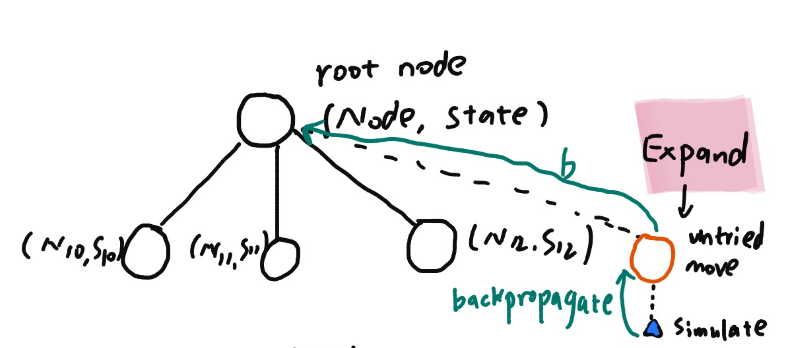 root node
(Node, state)
Expand
b
(N10,S10)
(N11,S11)
(N12.S12)
untried
move
backpropagate
simulate